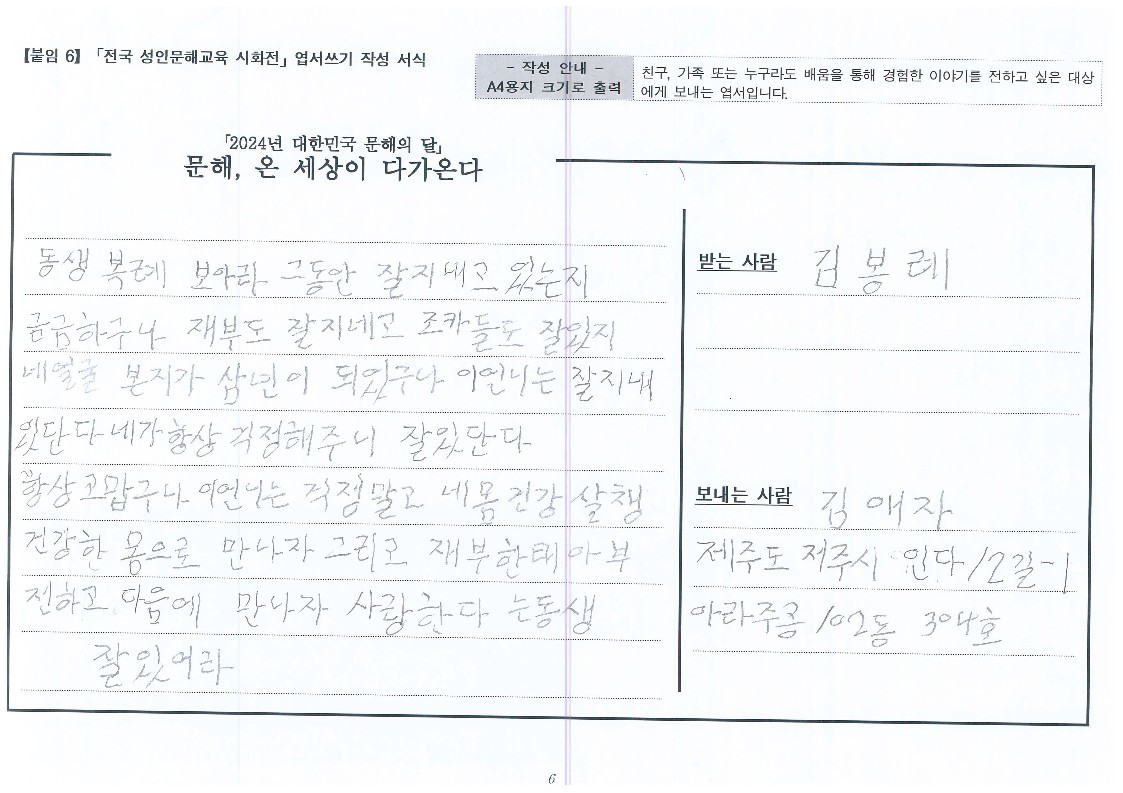 【붙임 6】 「전국 성인문해교육 시회전」 엽서쓰기 작성 서식
- 작성 안내 -
A4용지 크기로 출력
친구, 가족 또는 누구라도 배움을 통해 경험한 이야기를 전하고 싶은 대상
에게 보내는 엽서입니다.
「2024년 대한민국 문해의 달」
문해, 온 세상이 다가온다
동생 복례 보아라 그동안 잘지내고 있는지
궁금하구나 재부도 잘지네고 조카들도 잘있지
네얼굴 본지가 삼년이 되었구나 이언니는 잘지내
있단다 네가 항상 걱정해주니 잘있단다
항상고맙구나 이언니는 걱정말고 네몸건강 살챙
건강한 몸으로 만나자 그리고 재부한태 아부
전하고 다음에 만나자 사랑한다 는동생
잘있어라
받는 사람 김봉례
보내는 사람 김애자
제주도 제주시 인다12길-1
아라주공 102동 304호
6